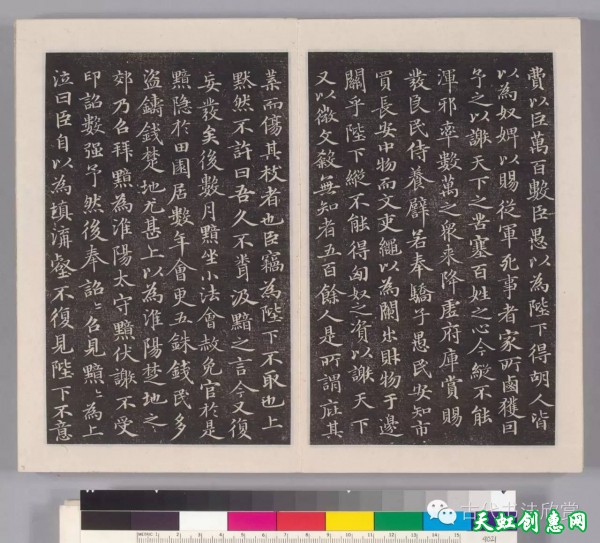 費以臣萬百數臣愚以為陛下得胡人皆
以為奴婢以賜從軍死事者家所鹵獲因
予之以謝天下之苦塞百姓之心今縱不能
渾邪率數萬之衆來降虛府庫賞賜
發良民侍養譬若奉驕子愚民安知市
買長安中物而文吏繩以為闌出財物于邊
關乎陛下縱不能得匈奴之資以謝天下
又以微文殺無知者五百餘人是所謂庇其
葉而傷其枝者也臣竊為陛下不取也上
黙然不許曰吾久不聞汲黯之言今又復
妄發矣後數月黯坐小法會赦免官於是
黯隐於田園居數年會更五銖錢民多
盗鑄錢楚地尤甚上以為淮陽楚地之
郊乃召拜黯為淮陽太守黯伏謝不受
印詔數强予然後奉詔詔召見黯黯為上
泣曰臣自以為填溝壑不復見陛下不意
古代书法欣赏
天虹创惠网